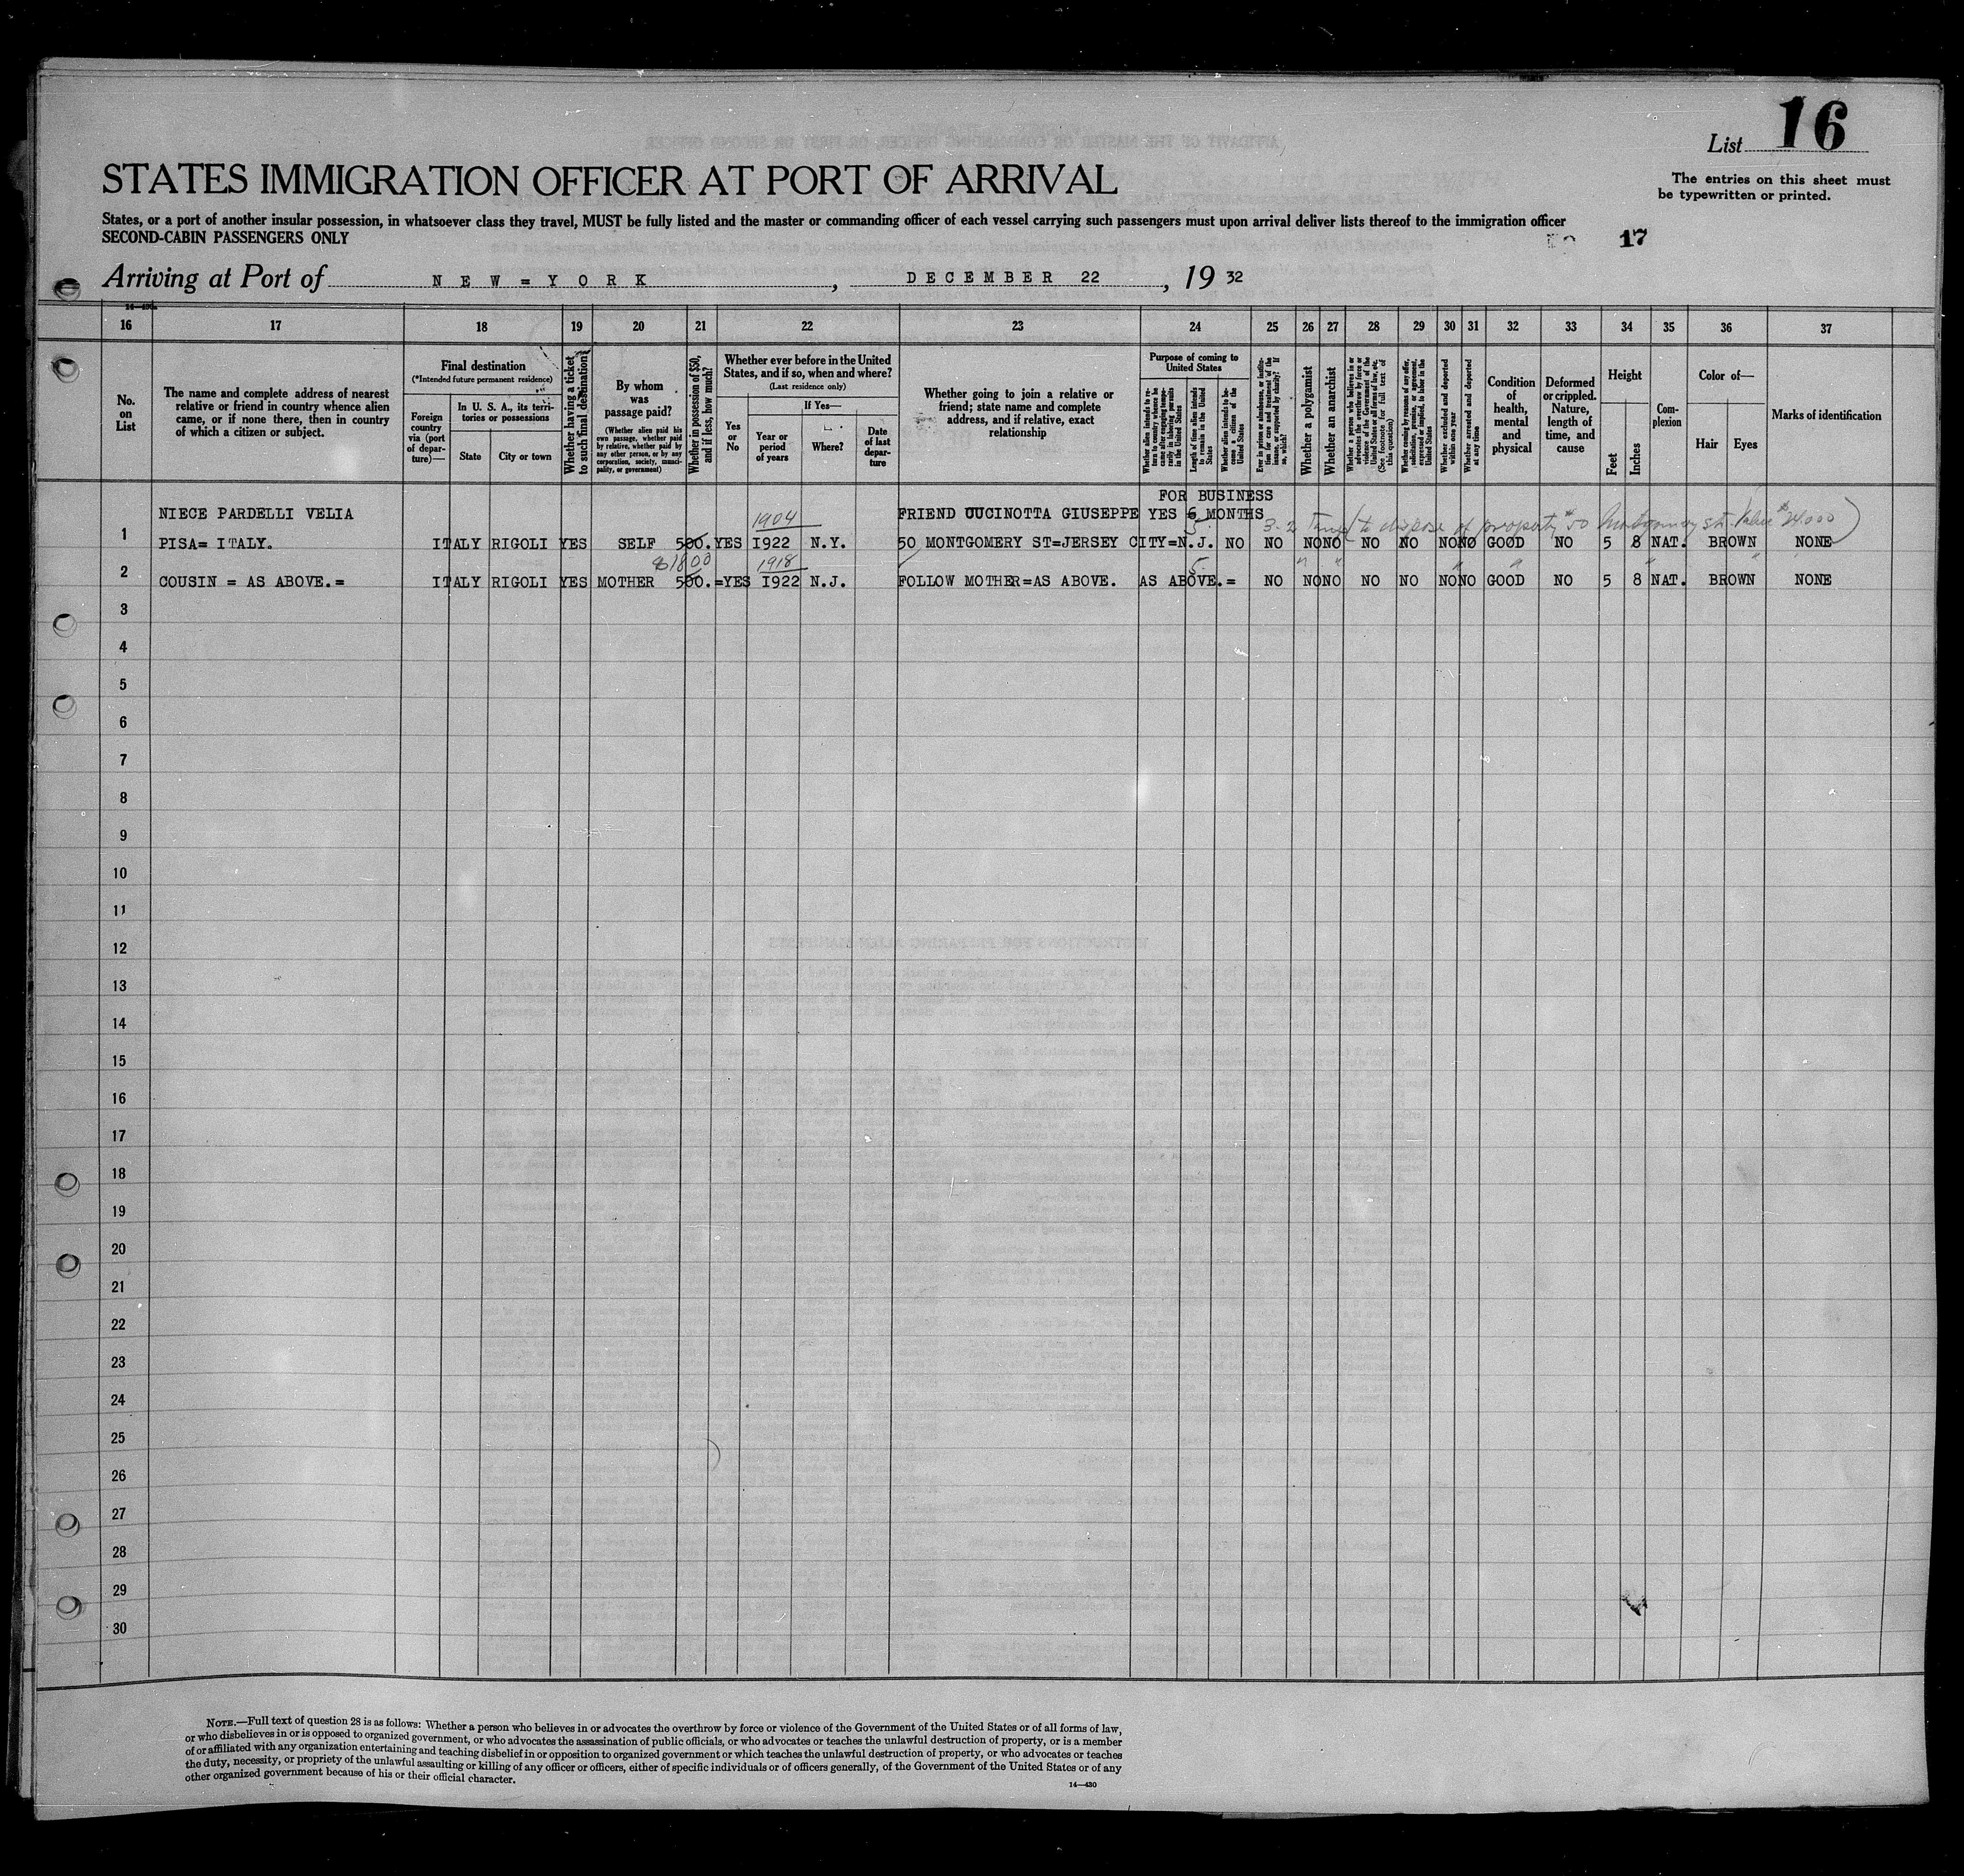 List 16
The entries on this sheet must
be typewritten or printed.
STATES IMMIGRATION OFFICER AT PORT OF ARRIVAL
States, or a port of another insular possession, in whatsoever class they travel, MUST be fully listed and the master or commanding officer of each vessel carrying such passengers must upon arrival deliver lists thereof to the immigration officer
SECOND-CABIN PASSENGERS ONLY
17
Arriving at Port of NEW=YORK, DECEMBER 22, 1932
16 17 18 19 20 21 22 23 24 25 26 27 28 29 30 31 32 33 34 35 36 37
No.
on
List
The name and complete address of nearest
relative or friend in country whence alien
came, or if none there, then in country
of which a citizen or subject.
Final destination
(*Intended future permanent residence)
Foreign
country
via (port
of depar-
ture)—
In U. S. A., its terri-
tories or possessions
State City or town
Whether having a ticket
to such final destination
By whom
was
passage paid?
(Whether alien paid his
own passage, whether paid
by relative, whether paid by
any other person, or by any
corporation, society, munici-
pality, or government)
Whether in possession of $50,
and if less, how much?
Whether ever before in the United
States, and if so, when and where?
(Last residence only)
Yes
or
No
If Yes—
Year or
period
of years
Where?
Date
of last
depar-
ture
Whether going to join a relative or
friend; state name and complete
address, and if relative, exact
relationship
Purpose of coming to
United States
Whether alien intends to re-
turn to country whence he
came after engaging tempo-
rarily in laboring pursuits
in the United States
Length of time alien intends
to remain in the United
States
Whether alien intends to be-
come a citizen of the
United States
Ever in prison or almshouse, or institu-
tion for care and treatment of the
insane, or supported by charity? If
so, which?
Whether a polygamist
Whether an anarchist
Whether a person who believes in or
advocates the overthrow by force or
violence of the Government of the
United States or all forms of law, etc.
(See footnote for full text of
this question)
Whether coming by reason of any offer,
solicitation, promise, or agreement,
expressed or implied, to labor in the
United States
Whether excluded and deported
within one year
Whether arrested and deported
at any time
Condition
of
health,
mental
and
physical
Deformed
or crippled.
Nature,
length of
time, and
cause
Height
Feet Inches
Com-
plexion
Color of—
Hair Eyes
Marks of identification
FOR BUSINESS
NIECE PARDELLI VELIA 1904 FRIEND CUCINOTTA GIUSEPPE YES 6 MONTHS
5 (to dispose of property #50 Montgomery St. Value $24.000)
1 PISA= ITALY. ITALY RIGOLI YES SELF 500. YES I922 N.Y. 50 MONTGOMERY ST=JERSEY CITY=N.J. NO NO NO NO NO NO NO NO GOOD NO 5 8 NAT. BROWN NONE
$1800 1918 5
2 COUSIN = AS ABOVE.= ITALY RIGOLI YES MOTHER 500.=YES I922 N.J. FOLLOW MOTHER=AS ABOVE. AS ABOVE.= NO NO NO NO NO NO NO GOOD NO 5 8 NAT. BROWN NONE
3
4
5
6
7
8
9
10
11
12
13
14
15
16
17
18
19
20
21
22
23
24
25
26
27
28
29
30
NOTE.—Full text of question 28 is as follows: Whether a person who believes in or advocates the overthrow by force or violence of the Government of the United States or of all forms of law,
or who disbelieves in or is opposed to organized government, or who advocates the assassination of public officials, or who advocates or teaches the unlawful destruction of property, or is a member
of or affiliated with any organization entertaining and teaching disbelief in or opposition to organized government or which teaches the unlawful destruction of property, or who advocates or teaches
the duty, necessity, or propriety of the unlawful assaulting or killing of any officer or officers, either of specific individuals or of officers generally, of the Government of the United States or of any
other organized government because of his or their official character.
14—430